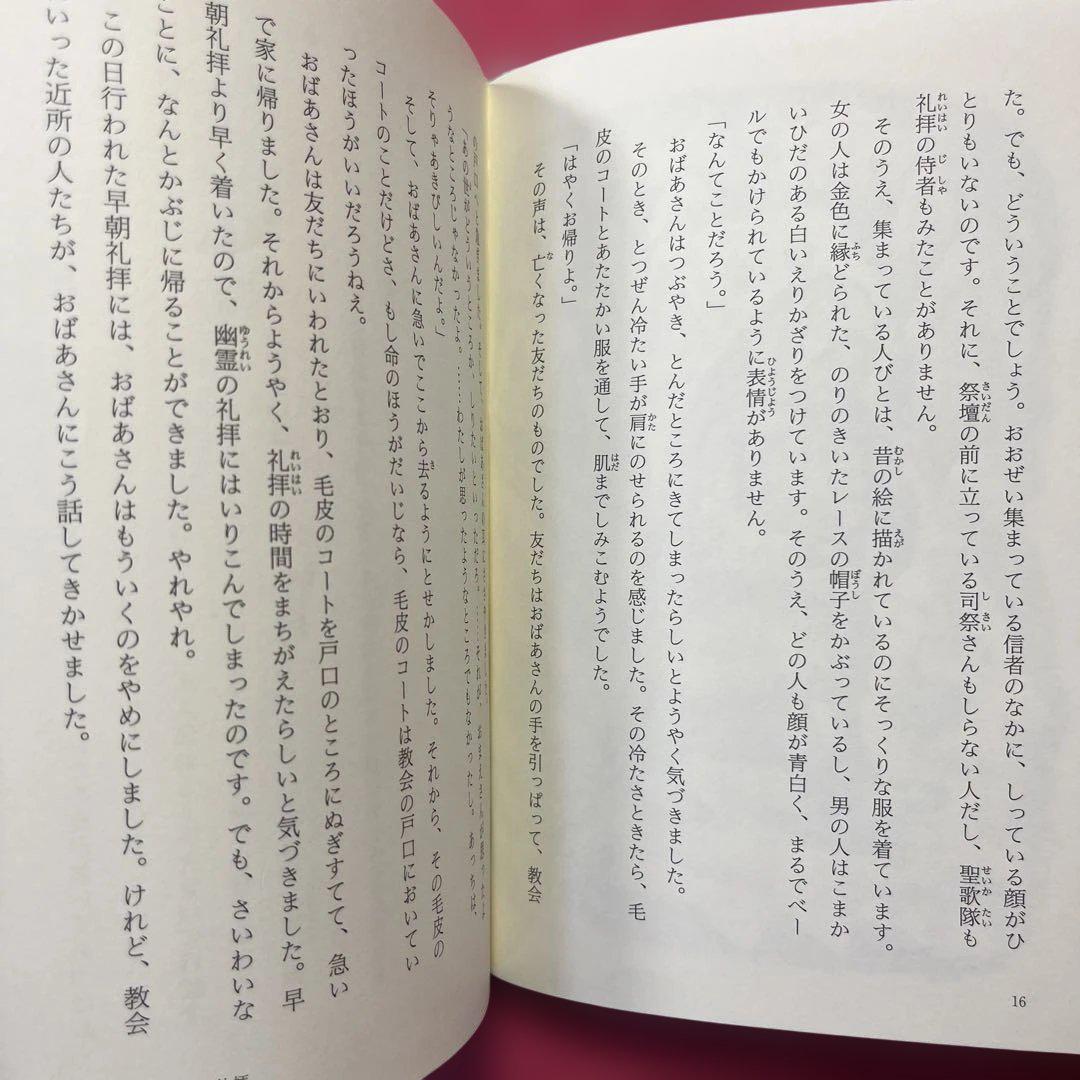 た。でも、どういうことでしょう。おおぜい集まっている信者のなかに、しっている顔がひ
とりもいないのです。それに、祭壇の前に立っている司祭さんもしらない人だし、聖歌隊も
礼拝の侍者もみたことがありません。
そのうえ、集まっている人びとは、昔の絵に描かれているのにそっくりな服を着ています。
女の人は金色に縁どられた、のりのきいたレースの帽子をかぶっているし、男の人はこまか
いひだのある白いえりかざりをつけています。そのうえ、どの人も顔が青白く、まるでベー
ルでもかけられているように表情がありません。
「なんてことだろう。」
おばあさんはつぶやき、とんだところにきてしまったらしいとようやく気づきました。
そのとき、とつぜん冷たい手が肩にのせられるのを感じました。その冷たさときたら、毛
皮のコートとあたたかい服を通して、肌までしみこむようでした。
「はやくお帰りよ。」
その声は、亡くなった友だちのものでした。友だちはおばあさんの手を引っぱって、教会
16
「あの世がどういうところか、しりたいといっただろ。……それが、おまえさんが思ったよ
うなところじゃなかったよ。……わたしが思ったようなところでもなかったし。あっちは、
そりゃあきびしいんだよ。」
そして、おばあさんに急いでここから去るようにとせかしました。それから、その毛皮の
コートのことだけどさ、もし命のほうがだいじなら、毛皮のコートは教会の戸口においてい
ったほうがいいだろうねえ。
おばあさんは友だちにいわれたとおり、毛皮のコートを戸口のところにぬぎすてて、急い
で家に帰りました。それからようやく、礼拝の時間をまちがえたらしいと気づきました。早
朝礼拝より早く着いたので、幽霊の礼拝にはいりこんでしまったのです。でも、さいわいな
ことに、なんとかぶじに帰ることができました。やれやれ。
この日行われた早朝礼拝には、おばあさんはもういくのをやめにしました。けれど、教会
いった近所の人たちが、おばあさんにこう話してきかせました。